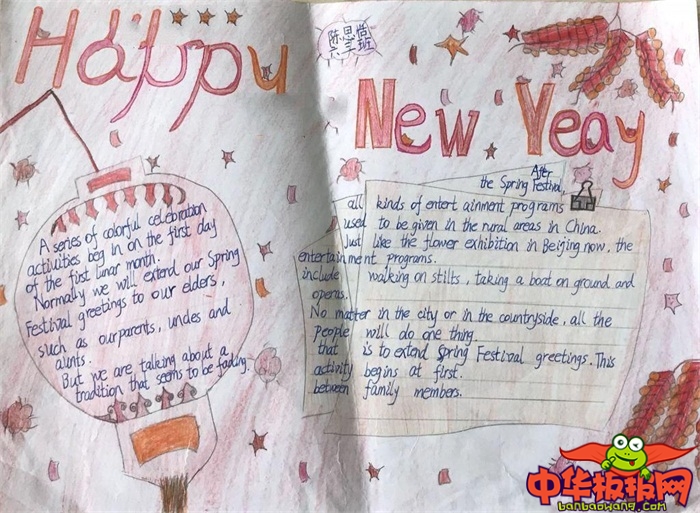 Happy
New Yeay
陈思尚
六三班
A series of colorful celebration
activities beg in on the first day
of the first lunar month.
Normally we will extend our Spring
Festival greetings to our elders,
such as ourparents, uncles and
aunts.
But we are talking about a
tradition that seems to be fading.
After
the Spring Festival,
all kinds of entert ainment programs
used to be given in the rural areas in China.
Just like the flower exhibition in Beijing now, the
entertainment programs.
include walking on stilts, taking a boat on ground and
operas.
No matter in the city or in the countryside, all the
people will do one thing
that is to extend Spring Festival greetings. This
activity begins at first.
between family members.
中华板报网
banbaowang.com